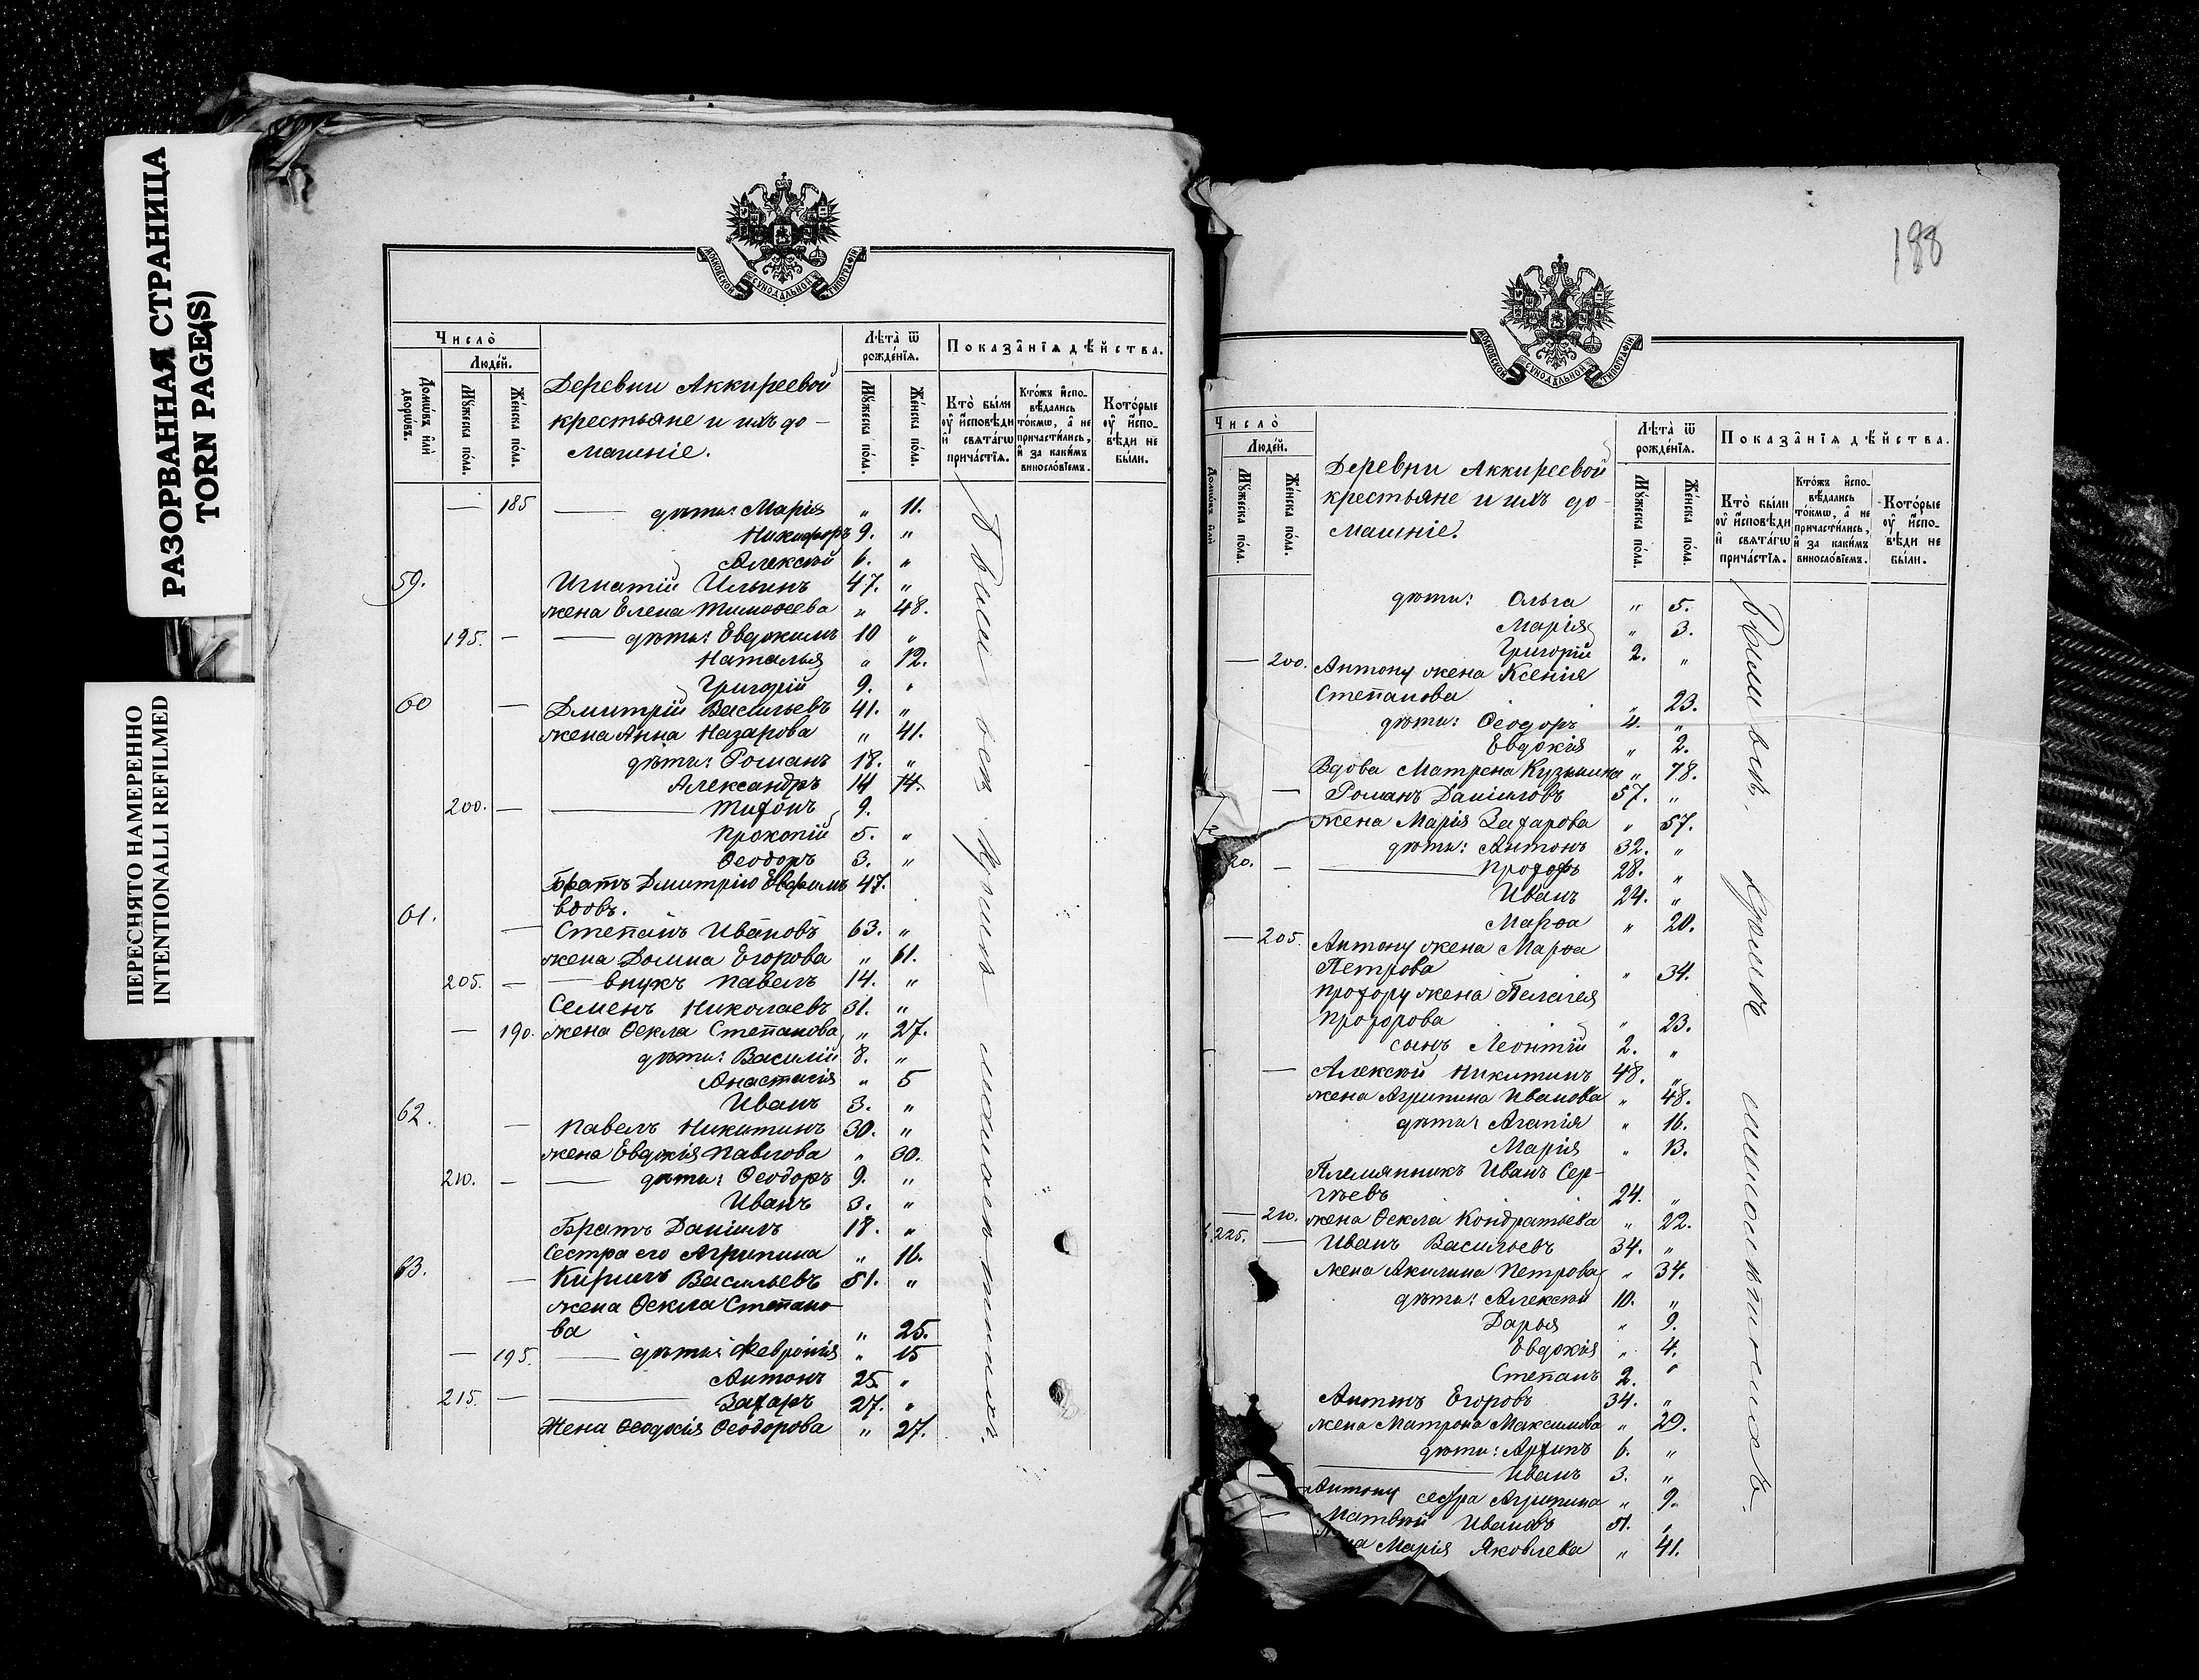 РАЗОРВАННАЯ СТРАНИЦА
TORN PAGE(S)
ПЕРЕСНЯТО НАМЕРЕННО
INTENTIONALLI REFILMED
МОСКОВСКОЙ СѴНОДАЛЬНОЙ ТИПОГРАФІИ
Число̀
Людей.
Домѡвъ или дворѡвъ.
Мꙋжеска пола.
Женска пола.
Деревни Аккиреевой
крестьяне и ихъ до-
машніе.
Лѣта̀ ѿ рожденїѧ.
Мꙋжеска пола.
Женска пола.
Показанїѧ дѣйства.
Кто̀ были оу҆ и҆сповѣди и҆ свѧтагѡ причастїѧ.
Ктожъ и҆сповѣдались токмѡ, а҆ не причастились, и҆ за какимъ винословїемъ.
Которые оу҆ и҆сповѣди не были.
— 185 —— дѣти: Марія „ 11.
Никифоръ 9. „
Алексѣй 6. „
59. Игнатій Ильинъ 47. „
жена Елена Тимоѳеева „ 48.
195. — —— дѣти: Евдокимъ 10 „
Наталья „ 12.
Григорій 9. „
60 — Дмитрій Васильевъ 41. „
жена Анна Назарова „ 41.
дѣти: Романъ 18. „
Александръ 14 14.
200. — —— Тифонъ 9.
Прокопій 5. „
Ѳеодоръ 3. „
Братъ Дмитрію Евфимъ 47.
вдовъ.
61. — Степанъ Ивановъ 63. „
жена Домна Егорова „ 61.
205. — — внукъ Павелъ 14. „
Семенъ Николаевъ 31. „
— 190. жена Ѳекла Степанова „ 27.
дѣти: Василій 8. „
Анастасія „ 5
Иванъ 3. „
62. — Павелъ Никитинъ 30. „
жена Евдокія Павлова „ 30.
210. — —— дѣти: Ѳеодоръ 9. „
Иванъ 3. „
Братъ Даніилъ 18. „
Сестра его Агрипина „ 16.
63. — Кирилъ Васильевъ 51. „
жена Ѳекла Степано-
ва „ 25.
— 195. —— дѣти: Февронія „ 15
Антонъ 25. „
215. — —— Захаръ 27. „
Жена Ѳеодосія Ѳеодорова „ 27.
188
МОСКОВСКОЙ СѴНОДАЛЬНОЙ ТИПОГРАФІИ
Число̀
Людей.
Домѡвъ или
Мꙋжеска пола.
Женска пола.
Деревни Аккиреевой
крестьяне и ихъ до-
машніе.
Лѣта̀ ѿ рожденїѧ.
Мꙋжеска пола.
Женска пола.
Показанїѧ дѣйства.
Кто̀ были оу҆ и҆сповѣди и҆ свѧтагѡ причастїѧ.
Ктожъ и҆сповѣдались токмѡ, а҆ не причастились, и҆ за какимъ винословїемъ.
Которые оу҆ и҆сповѣди не были.
дѣти: Ольга „ 5.
Марія „ 3.
Григорій 2. „
— 200. Антону жена Ксенія
Степанова „ 23.
дѣти: Ѳеодоръ 4. „
Евдокія „ 2.
Вдова Матрена Кузьмина „ 78.
— Романъ Даніиловъ 57. „
жена Марія Захарова „ 57.
дѣти: Антонъ 32. „
20. — —— Прохоръ 28. „
Иванъ 24. „
Марѳа „ 20.
— 205. Антону жена Марѳа
Петрова „ 34.
Прохору жена Пелагея
Прохорова „ 23.
сынъ Леонтій 2. „
— Алексѣй Никитинъ 48. „
жена Агрипина Иванова „ 48.
дѣти: Агапія „ 16.
Марія „ 13.
Племянникъ Иванъ Сер-
гѣевъ 24. „
— 210. жена Ѳекла Кондратьева „ 22.
225. — Иванъ Васильевъ 34. „
жена Акилина Петрова „ 34.
дѣти: Алексѣй 10. „
Дарья „ 9.
Евдокія „ 4.
Степанъ 2. „
Антонъ Егоровъ 34. „
жена Матрона Максимова „ 29.
дѣти: Архипъ 6. „
—— Иванъ 3. „
— Антону сестра Агрипина „ 9.
— Матвѣй Ивановъ 51. „
на Марія Яковлева „ 41.